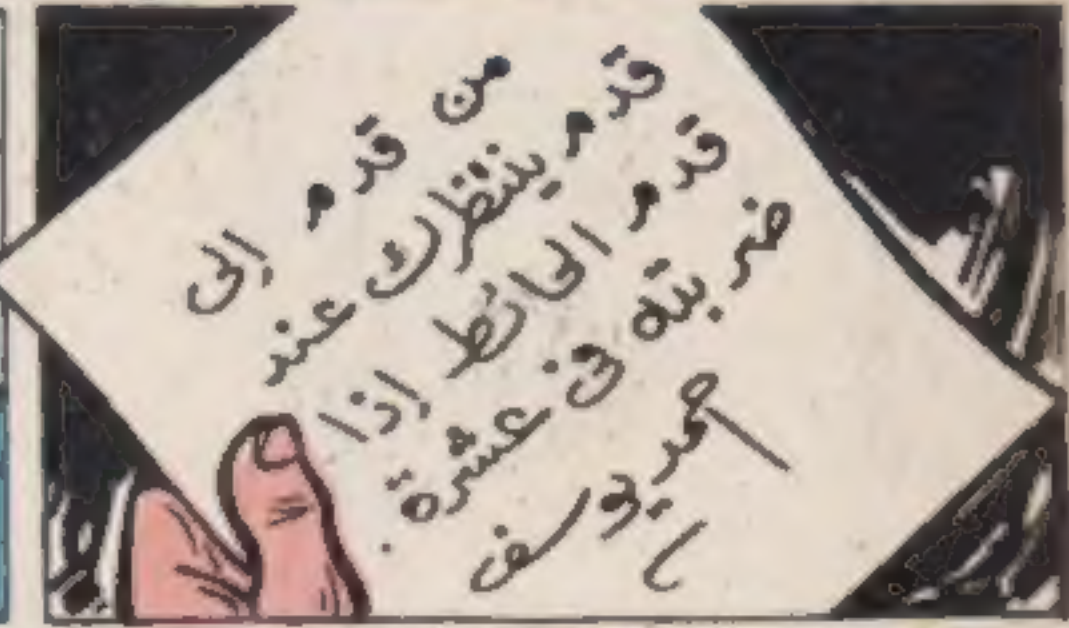 من قدم إلى
قدم ينتظرك عند
قدم الحائط إذا
ضربته في عشرة.
احمد يوسف